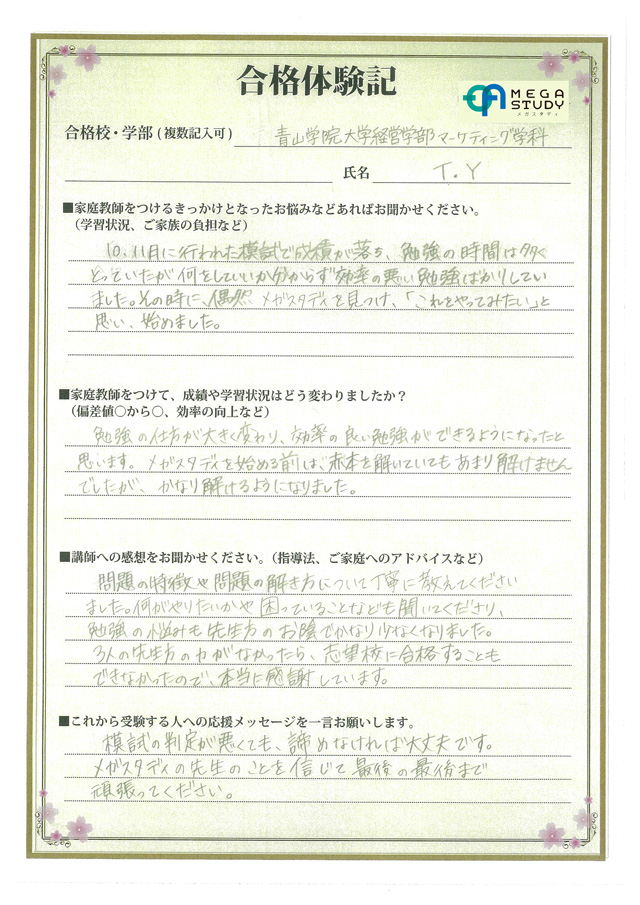 合格体験記
MEGA
STUDY
メガスタディ
合格校・学部(複数記入可) 青山学院大学経営学部マーケティング学科
氏名 T.Y
■家庭教師をつけるきっかけとなったお悩みなどあればお聞かせください。
(学習状況、ご家族の負担など)
10、11月に行われた模試で成績が落ち、勉強の時間は多く
とっていたが何をしていいか分からず効率の悪い勉強ばかりしてい
ました。その時に、偶然、メガスタディを見つけ、「これをやってみたい」と
思い、始めました。
■家庭教師をつけて、成績や学習状況はどう変わりましたか?
(偏差値〇から〇、効率の向上など)
勉強の仕方が大きく変わり、効率の良い勉強ができるようになったと
思います。メガスタディを始める前は、赤本を解いていてもあまり解けません
でしたが、かなり解けるようになりました。
■講師への感想をお聞かせください。(指導法、ご家庭へのアドバイスなど)
問題の特徴や問題の解き方について丁寧に教えてください
ました。何がやりたいかや困っていることなども聞いてくださり、
勉強の悩みも先生方のお陰でかなり少なくなりました。
3人の先生方の力がなかったら、志望校に合格することも
できなかったので、本当に感謝しています。
■これから受験する人への応援メッセージを一言お願いします。
模試の判定が悪くても、諦めなければ大丈夫です。
メガスタディの先生のことを信じて最後の最後まで
頑張ってください。